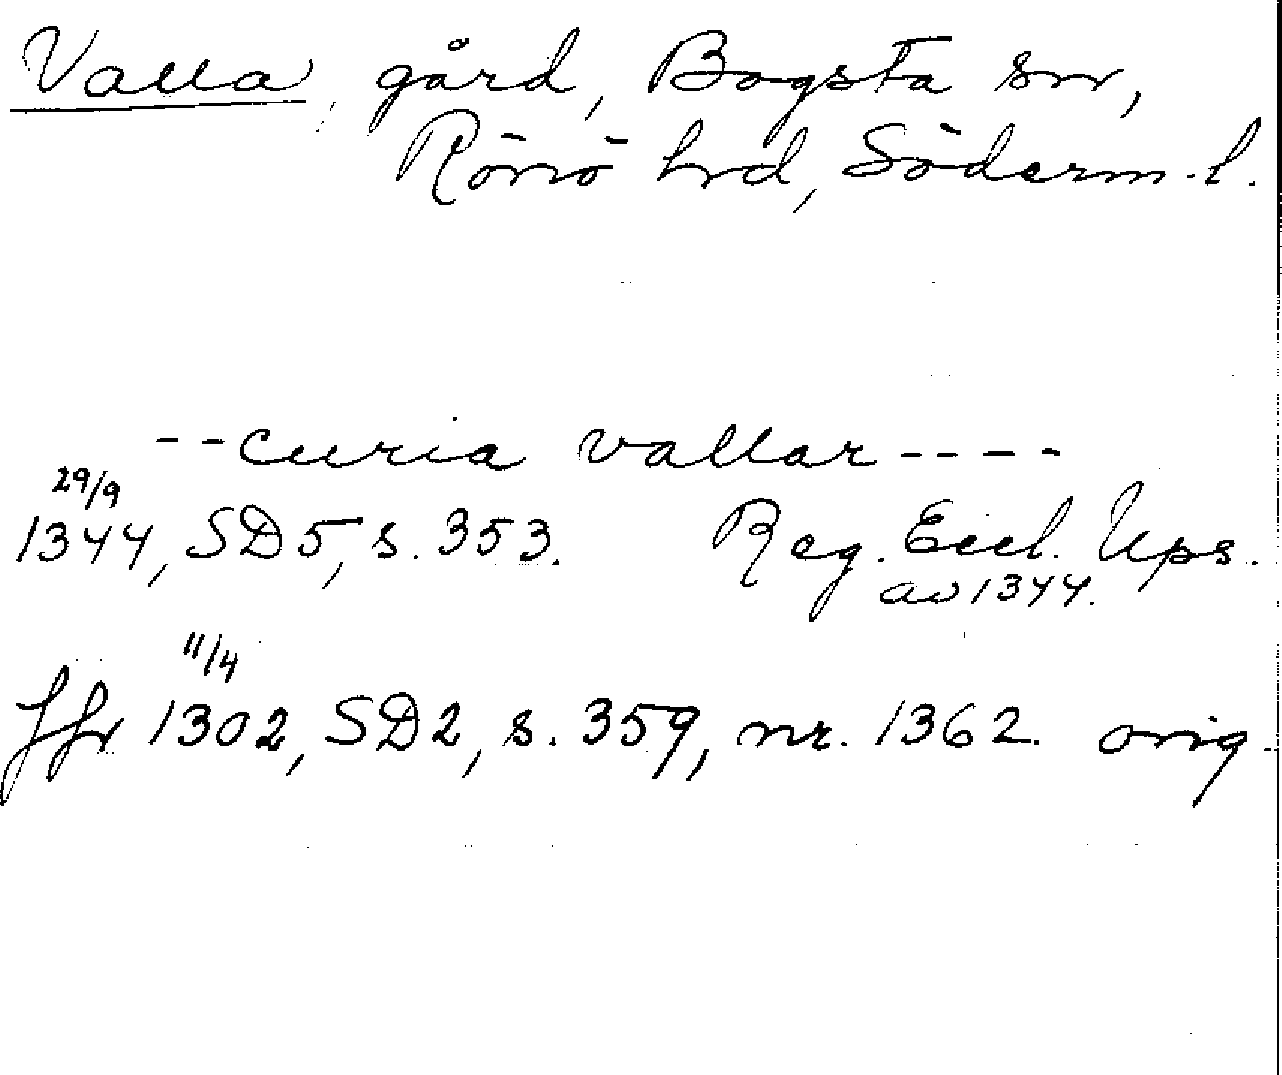 Valla, gård, Bogsta sn,
Rönö hrd, Söderm. l.
--curia vallar----
29/9
1344, SD5, s. 353. Reg. Eccl. Ups.
av 1344.
11/4
Jfr 1302, SD2, s. 359, nr. 1362. orig.